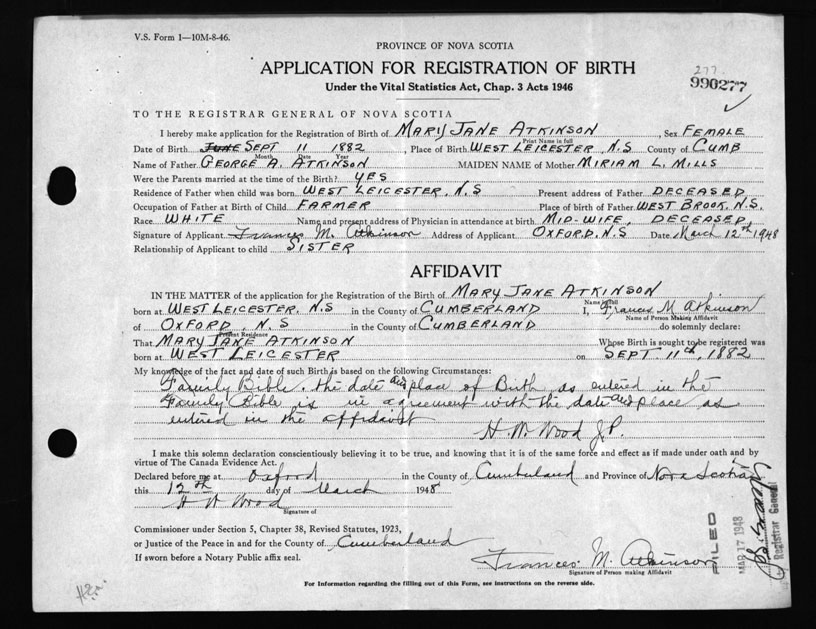 V.S. Form 1—10M-8-46.
PROVINCE OF NOVA SCOTIA
277
990277
APPLICATION FOR REGISTRATION OF BIRTH
Under the Vital Statistics Act, Chap. 3 Acts 1946
TO THE REGISTRAR GENERAL OF NOVA SCOTIA
I hereby make application for the Registration of Birth of MARY JANE ATKINSON, Sex FEMALE
Print Name in full
Date of Birth JUNE SEPT 11 1882, Place of Birth WEST LEICESTER, N.S County of CUMB
Month Date Year
Name of Father GEORGE A. ATKINSON MAIDEN NAME of Mother MIRIAM L. MILLS
Were the Parents married at the time of Birth? YES
Residence of Father when child was born WEST LEICESTER, N.S Present address of Father DECEASED
Occupation of Father at Birth of Child FARMER Place of birth of Father WEST BROOK, N.S.
Race WHITE Name and present address of Physician in attendance at birth MID-WIFE, DECEASED
Signature of Applicant Frances M. Atkinson Address of Applicant OXFORD, N.S Date March 12th 1948
Relationship of Applicant to child SISTER
AFFIDAVIT
IN THE MATTER of the application for the Registration of the Birth of MARY JANE ATKINSON
Name in full
born at WEST LEICESTER, N.S in the County of CUMBERLAND I, Frances M Atkinson
Name of Person Making Affidavit
of OXFORD, N.S in the County of CUMBERLAND do solemnly declare:
Present Residence
That MARY JANE ATKINSON Whose Birth is sought to be registered was
born at WEST LEICESTER on SEPT 11th, 1882
My knowledge of the fact and date of such Birth is based on the following Circumstances:
Family Bible. the date and place of Birth as entered in the
Family Bible is in agreement with the date and place as
entered in the affidavit
H. W. Wood J.P.
I make this solemn declaration conscientiously believing it to be true, and knowing that it is of the same force and effect as if made under oath and by
virtue of The Canada Evidence Act.
Declared before me at Oxford in the County of Cumberland and Province of Nova Scotia
this 12th day of March 1948
H W Wood
Signature of
Commissioner under Section 5, Chapter 38, Revised Statutes, 1923,
or Justice of the Peace in and for the County of Cumberland
If sworn before a Notary Public affix seal.
Frances M. Atkinson
Signature of Person making Affidavit
FILED
MAR 17 1948
Registrar General
For Information regarding the filling out of this Form, see instructions on the reverse side.